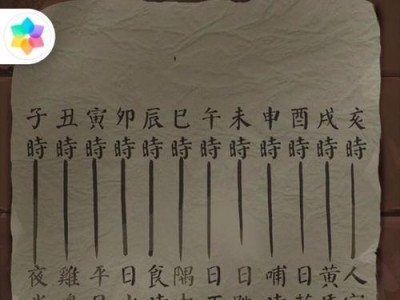 子丑寅卯辰巳午未申酉戌亥
時時時時時時時時時時時時
夜雞平日食隅日日哺日黃人